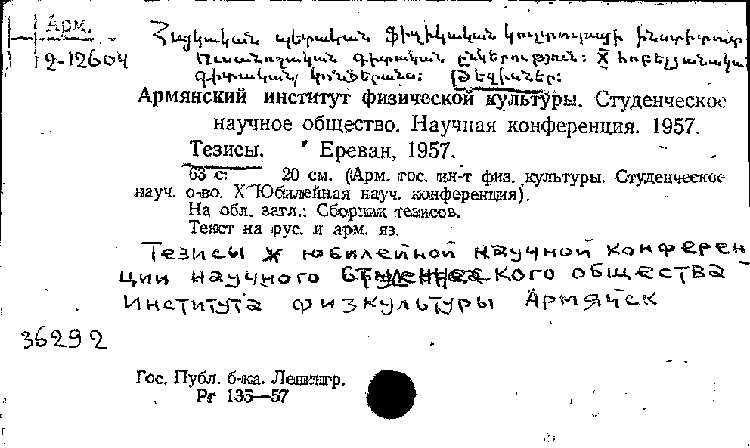 Арм.
2-12604
Հայկական պետական ֆիզիկական կուլտուրայի ինստիտուտ
Ուսանողական գիտական ընկերություն: X հոբելյանական
գիտական կոնֆերանս: Թեզիսներ:
Армянский институт физической культуры. Студенческое
научное общество. Научная конференция. 1957.
Тезисы. Ереван, 1957.
63 с. 20 см. (Арм. гос. ин-т физ. культуры. Студенческое
науч. о-во. X Юбилейная науч. конференция).
На обл. загл.: Сборник тезисов.
Текст на рус. и арм. яз.
Тезисы X юбилейной научной конферен
ции научного студенческого общества
Института физкультуры
36292
Гос. Публ. б-ка. Ленингр.
Рг 135—57